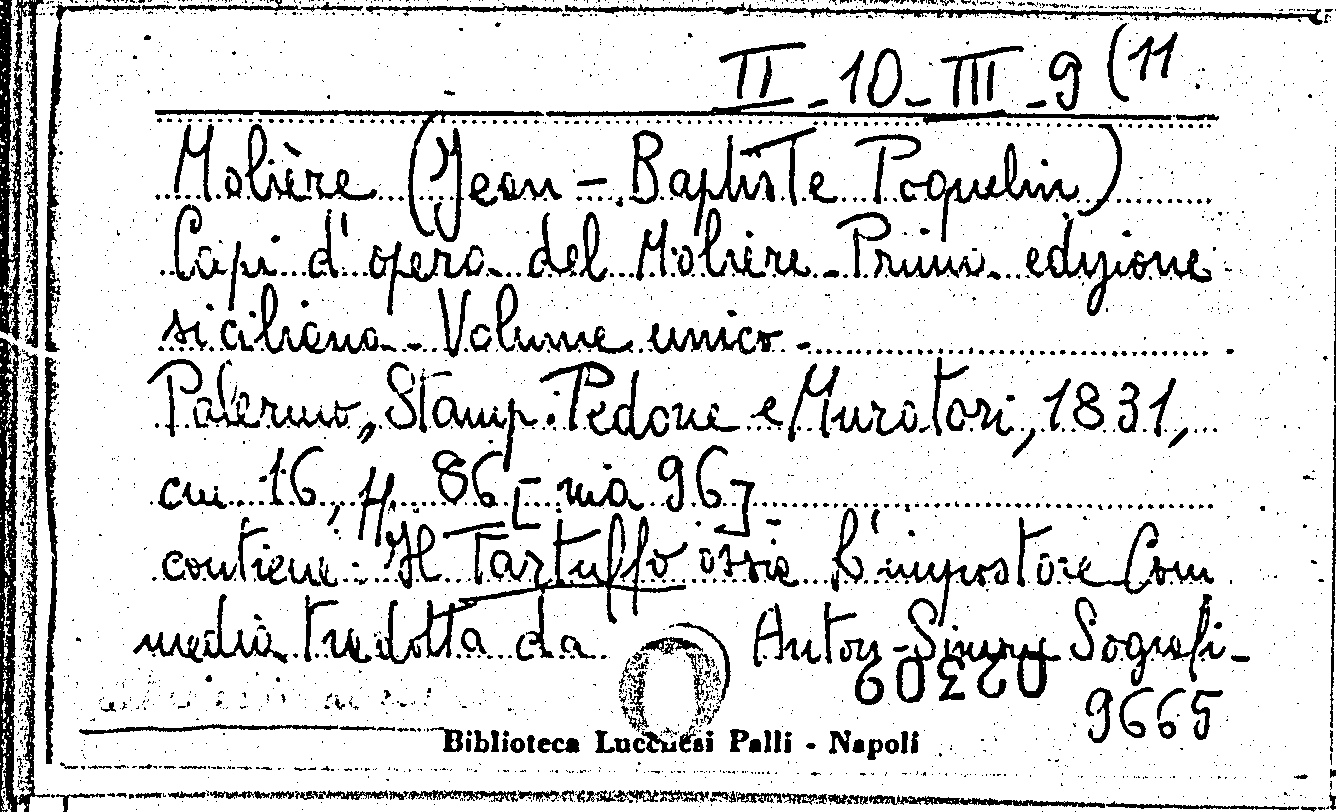 II - 10 - III - 9 (11
Molière (Jean - Baptiste Poquelin)
Capi d'opera del Molière - Prima edizione
siciliana - Volume unico -
Palermo, Stamp. Pedone e Muratori, 1831,
cm 16, pp. 86 [ma 96]
contiene: Il Tartuffo ossia L'impostore Com
media tradotta da Anton-Simone Sografi -
02309
9665
Biblioteca Lucchesi Palli - Napoli